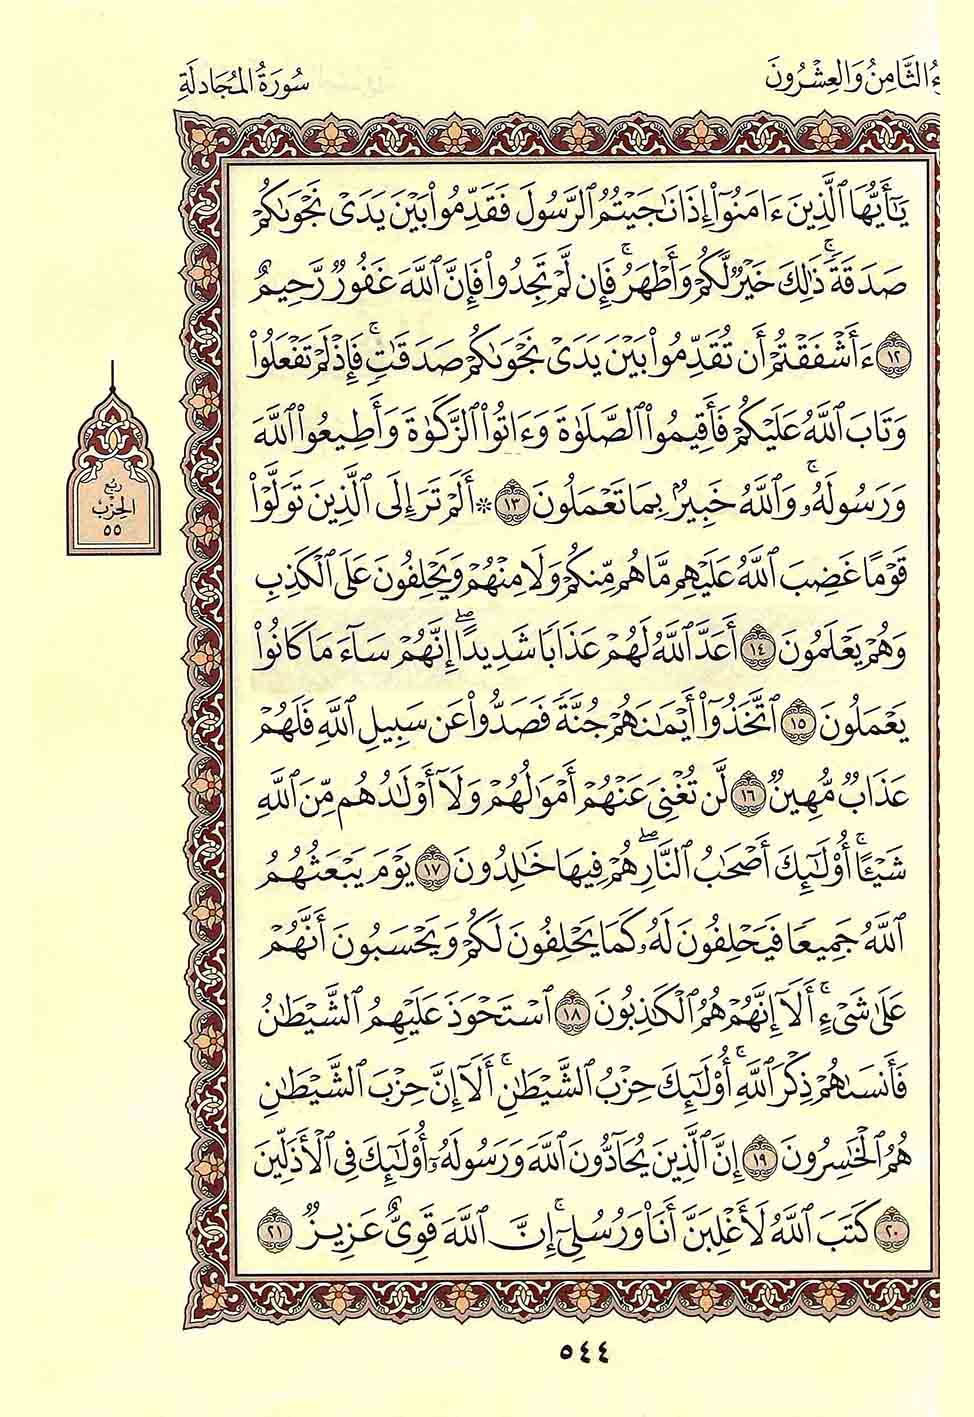 ءُ الثَّامِنُ وَالعِشْرُونَ
سُورَةُ المُجَادلَةِ
يَٰٓأَيُّهَا ٱلَّذِينَ ءَامَنُوٓاْ إِذَا نَٰجَيۡتُمُ ٱلرَّسُولَ فَقَدِّمُواْ بَيۡنَ يَدَيۡ نَجۡوَىٰكُمۡ
صَدَقَةٗۚ ذَٰلِكَ خَيۡرٞ لَّكُمۡ وَأَطۡهَرُۚ فَإِن لَّمۡ تَجِدُواْ فَإِنَّ ٱللَّهَ غَفُورٞ رَّحِيمٌ
١٢ ءَأَشۡفَقۡتُمۡ أَن تُقَدِّمُواْ بَيۡنَ يَدَيۡ نَجۡوَىٰكُمۡ صَدَقَٰتٖۚ فَإِذۡ لَمۡ تَفۡعَلُواْ
وَتَابَ ٱللَّهُ عَلَيۡكُمۡ فَأَقِيمُواْ ٱلصَّلَوٰةَ وَءَاتُواْ ٱلزَّكَوٰةَ وَأَطِيعُواْ ٱللَّهَ
وَرَسُولَهُۥۚ وَٱللَّهُ خَبِيرُۢ بِمَا تَعۡمَلُونَ ١٣ ۞ أَلَمۡ تَرَ إِلَى ٱلَّذِينَ تَوَلَّوۡاْ
قَوۡمًا غَضِبَ ٱللَّهُ عَلَيۡهِم مَّا هُم مِّنكُمۡ وَلَا مِنۡهُمۡ وَيَحۡلِفُونَ عَلَى ٱلۡكَذِبِ
وَهُمۡ يَعۡلَمُونَ ١٤ أَعَدَّ ٱللَّهُ لَهُمۡ عَذَابٗا شَدِيدًاۖ إِنَّهُمۡ سَآءَ مَا كَانُواْ
يَعۡمَلُونَ ١٥ ٱتَّخَذُوٓاْ أَيۡمَٰنَهُمۡ جُنَّةٗ فَصَدُّواْ عَن سَبِيلِ ٱللَّهِ فَلَهُمۡ
عَذَابٞ مُّهِينٞ ١٦ لَّن تُغۡنِيَ عَنۡهُمۡ أَمۡوَٰلُهُمۡ وَلَآ أَوۡلَٰدُهُم مِّنَ ٱللَّهِ
شَيۡـًٔاۚ أُوْلَٰٓئِكَ أَصۡحَٰبُ ٱلنَّارِۖ هُمۡ فِيهَا خَٰلِدُونَ ١٧ يَوۡمَ يَبۡعَثُهُمُ
ٱللَّهُ جَمِيعٗا فَيَحۡلِفُونَ لَهُۥ كَمَا يَحۡلِفُونَ لَكُمۡ وَيَحۡسَبُونَ أَنَّهُمۡ
عَلَىٰ شَيۡءٍۚ أَلَآ إِنَّهُمۡ هُمُ ٱلۡكَٰذِبُونَ ١٨ ٱسۡتَحۡوَذَ عَلَيۡهِمُ ٱلشَّيۡطَٰنُ
فَأَنسَىٰهُمۡ ذِكۡرَ ٱللَّهِۚ أُوْلَٰٓئِكَ حِزۡبُ ٱلشَّيۡطَٰنِۚ أَلَآ إِنَّ حِزۡبَ ٱلشَّيۡطَٰنِ
هُمُ ٱلۡخَٰسِرُونَ ١٩ إِنَّ ٱلَّذِينَ يُحَآدُّونَ ٱللَّهَ وَرَسُولَهُۥٓ أُوْلَٰٓئِكَ فِي ٱلۡأَذَلِّينَ
٢٠ كَتَبَ ٱللَّهُ لَأَغۡلِبَنَّ أَنَا۠ وَرُسُلِيٓۚ إِنَّ ٱللَّهَ قَوِيٌّ عَزِيزٞ ٢١
رُبُع
الحِزْب
٥٥
٥٤٤